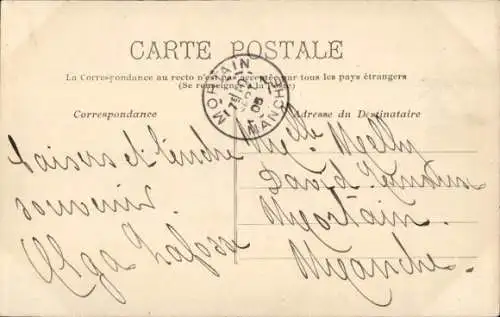 CARTE POSTALE
La Correspondance au recto n'est pas acceptée par tous les pays étrangers
(Se renseigner à la Poste)
MORTAIN
MANCHE
05
Correspondance
Adresse du Destinataire
Baisers et tendre
souvenir.
Olga
Melle Nelly
David
Mortain.
Manche.